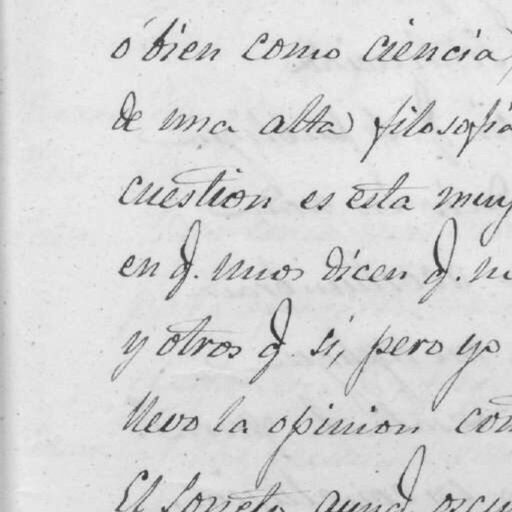 ó bien como ciencia,
de una alta filosofia
cuestion es esta muy
en q. unos dicen q. n
y otros q. si, pero yo
llevo la opinion con
El Soneto aunq. oscu